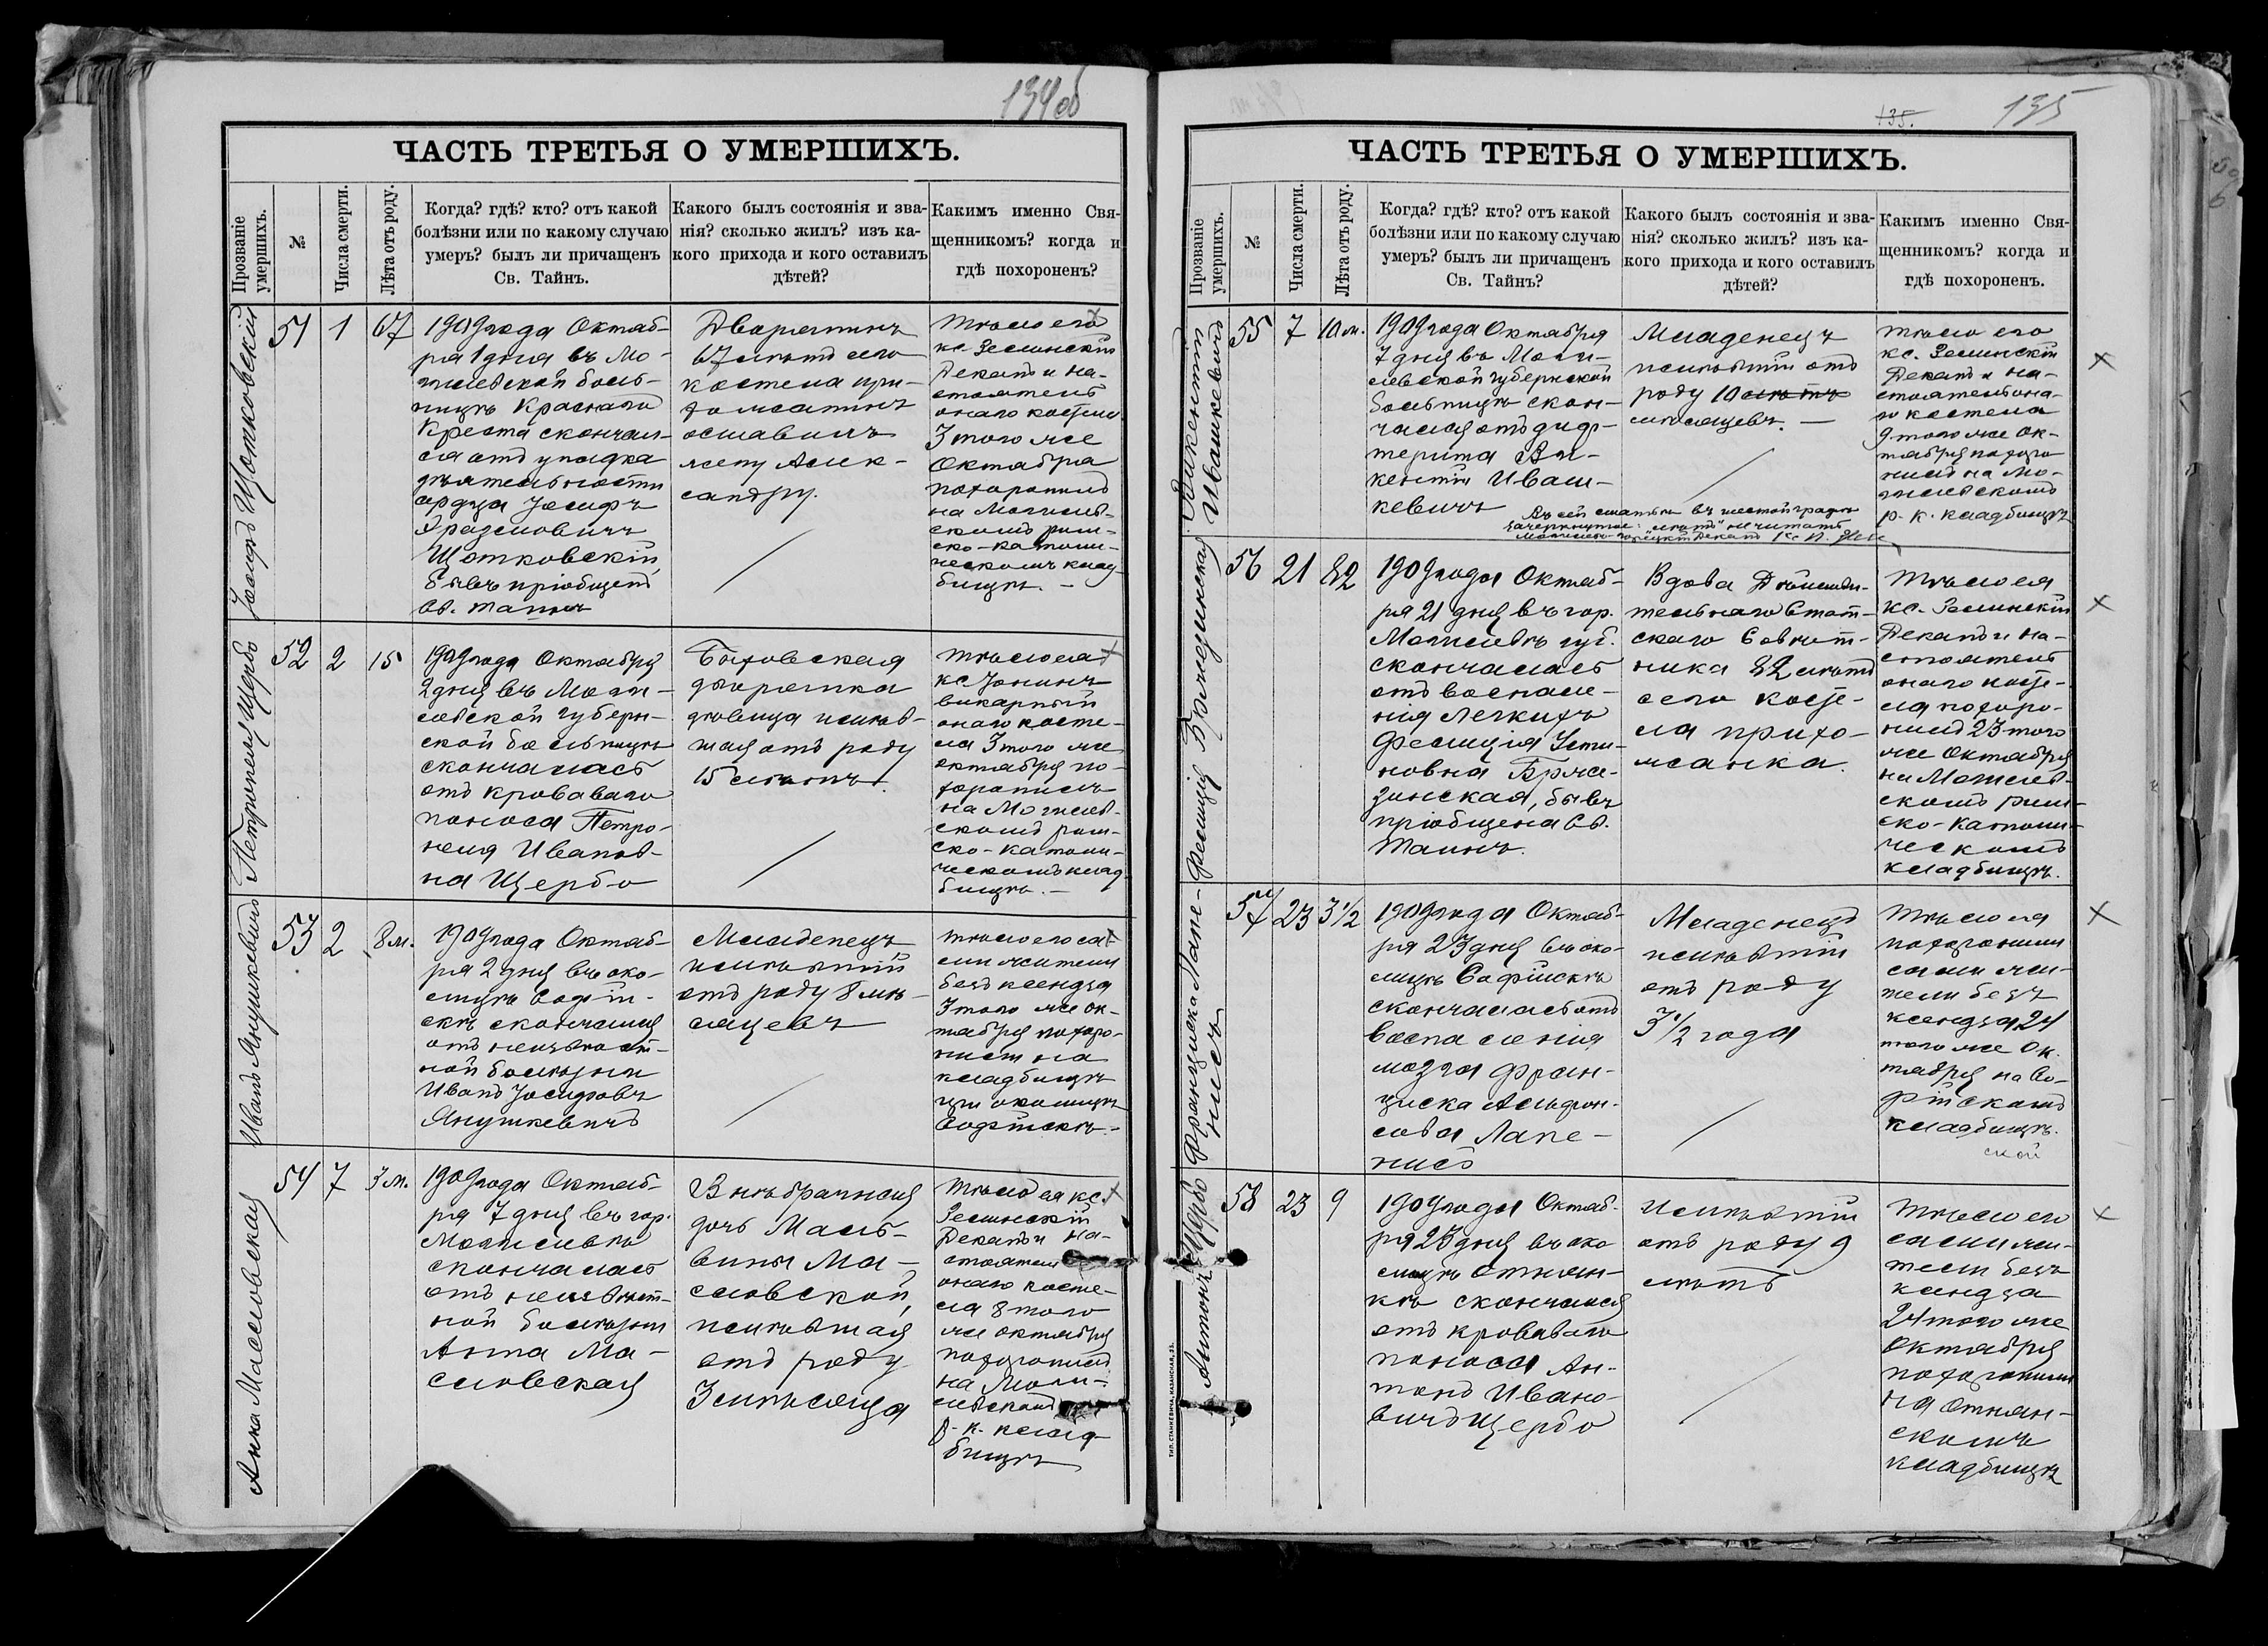 134об
ЧАСТЬ ТРЕТЬЯ О УМЕРШИХЪ.
Прозваніе умершихъ.
№
Числа смерти.
Лѣта отъ роду.
Когда? гдѣ? кто? отъ какой
болѣзни или по какому случаю
умеръ? былъ ли причащенъ
Св. Тайнъ.
Какого былъ состоянія и зва-
нія? сколько жилъ? изъ ка-
кого прихода и кого оставилъ
дѣтей?
Какимъ именно Свя-
щенникомъ? когда и
гдѣ похороненъ?
Іосифъ Щотковскій
51
1
67
1909 года Октяб-
ря 1 дня въ Мо-
гилевской боль-
ницѣ Краснаго
Креста скончал-
ся отъ упадка
дѣятельности
сердца Іосифъ
Щотковскій,
бывъ пріобщенъ
Св. Таинъ
Дворянинъ
67 лѣтъ сего
костела при-
хожанинъ
оставилъ
жену Алек-
сандру.
Тѣло его
кс. Зелинскій
Деканъ и на-
стоятель
онаго костела
3 того же
Октября
похоронилъ
на Могилев-
скомъ рим-
ско-католи-
ческомъ клад-
бищѣ. —
Петронеля Щербо
52
2
15
1909 года Октября
2 дня въ Моги-
левской губерн-
ской больницѣ
скончалась
отъ кроваваго
поноса Петро-
неля Иванов-
на Щербо
Быховская
дворянка
дѣвица имѣв-
шая отъ роду
15 лѣтъ.
Тѣло ея
кс. Іонинъ
викарный
онаго косте-
ла 3 того же
октября по-
хоронилъ
на Могилев-
скомъ рим-
ско-католи-
ческомъ клад-
бищѣ. —
Иванъ Янушкевичъ
53
2
8 м.
1909 года Октяб-
ря 2 дня въ око-
лицѣ Софій-
скѣ скончался
отъ неизвѣст-
ной болѣзни
Иванъ Іосифовъ
Янушкевичъ
Младенецъ
имѣвшій
отъ роду 8 мѣ-
сяцевъ
Тѣло его са-
ми жители
безъ ксендза
3 того же ок-
тября похоро-
нили на
кладбищѣ
при околицѣ
Софійскѣ. —
Анна Масловская
54
7
3 м.
1909 года Октяб-
ря 7 дня въ гор.
Могилевѣ
скончалась
отъ неизвѣст-
ной болѣзни
Анна Ма-
словская
Внѣбрачная
дочь Маль-
вины Ма-
словской,
имѣвшая
отъ роду
3 мѣсяца
Тѣло ея кс.
Зелинскій
Деканъ и на-
стоятель
онаго косте-
ла 8 того
же октября
похоронилъ
на Моги-
левскомъ
р.-к. клад-
бищѣ
135.
135
ЧАСТЬ ТРЕТЬЯ О УМЕРШИХЪ.
Прозваніе умершихъ.
№
Числа смерти.
Лѣта отъ роду.
Когда? гдѣ? кто? отъ какой
болѣзни или по какому случаю
умеръ? былъ ли причащенъ
Св. Тайнъ?
Какого былъ состоянія и зва-
нія? сколько жилъ? изъ ка-
кого прихода и кого оставилъ
дѣтей?
Какимъ именно Свя-
щенникомъ? когда и
гдѣ похороненъ.
Викентій Ивашкевичъ
55
7
10 м.
1909 года Октября
7 дня въ Моги-
левской губернской
больницѣ скон-
чался отъ диф-
терита Ви-
кентій Иваш-
кевичъ
Младенецъ
имѣвшій отъ
роду 10 лѣтъ
мѣсяцевъ. —
Тѣло его
кс. Зелинскій
Деканъ и на-
стоятель она-
го костела
9 того же Ок-
тября похоро-
нилъ на Мо-
гилевскомъ
р.-к. кладбищѣ
Въ сей статьѣ въ шестой графѣ
зачеркнутое: "лѣтъ" не читать
Деканъ Кс.
Фелиція Бржезинская
56
21
82
1909 года Октяб-
ря 21 дня въ гор.
Могилевѣ губ.
скончалась
отъ воспале-
нія легкихъ
Фелиція Усти-
новна Брже-
зинская, бывъ
пріобщена Св.
Таинъ.
Вдова Дѣйстви-
тельнаго Стат-
скаго Совѣт-
ника 82 лѣтъ
сего косте-
ла прихо-
жанка.
Тѣло ея
кс. Зелинскій
Деканъ и на-
стоятель
онаго косте-
ла похоро-
нилъ 23 того
же Октября
на Могилев-
скомъ рим-
ско-католи-
ческомъ
кладбищѣ.
Франциска Лапе-
нисъ
57
23
3 1/2
1909 года Октяб-
ря 23 дня въ око-
лицѣ Софійскѣ
скончалась отъ
воспаленія
мозга Фран-
циска Альфон-
сова Лапе-
нисъ
Младенецъ
имѣвшій
отъ роду
3 1/2 года
Тѣло ея
похоронили
сами жи-
тели безъ
ксендза 24
того же Ок-
тября на Со-
фійскомъ
кладбищѣ.
ской
Антонъ Щербо
58
23
9
1909 года Октяб-
ря 23 дня въ око-
лицѣ Отнян-
кѣ скончался
отъ кроваваго
поноса Ан-
тонъ Ивано-
вичъ Щербо
Имѣвшій
отъ роду 9
лѣтъ
Тѣло его
сами жи-
тели безъ
ксендза
24 того же
Октября
похоронили
на Отнян-
скомъ
кладбищѣ
ТИП. СТАНКЕВИЧА, КАЗАНСКАЯ, 25.